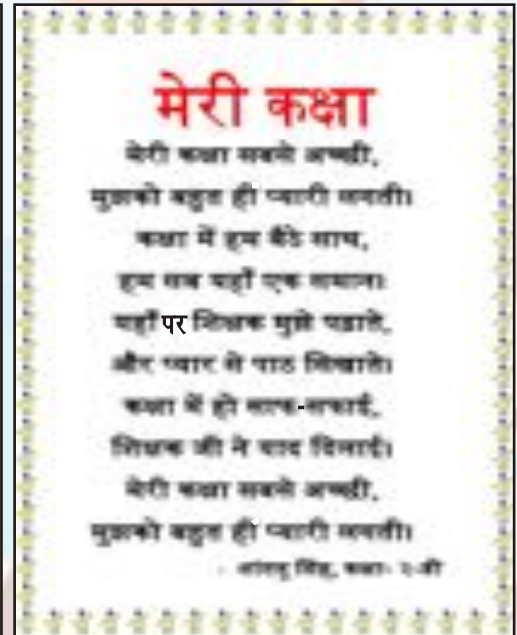 मेरी कक्षा
मेरी कक्षा सबसे अच्छी,
मुझको बहुत ही प्यारी लगती।
कक्षा में हम बैठे साथ,
हम सब यहाँ एक समान।
यहाँ पर शिक्षक मुझे पढ़ाते,
और प्यार से पाठ सिखाते।
कक्षा में हो साफ-सफाई,
शिक्षक जी ने याद दिलाई।
मेरी कक्षा सबसे अच्छी,
मुझको बहुत ही प्यारी लगती।
- सिंह, कक्षा- २-बी